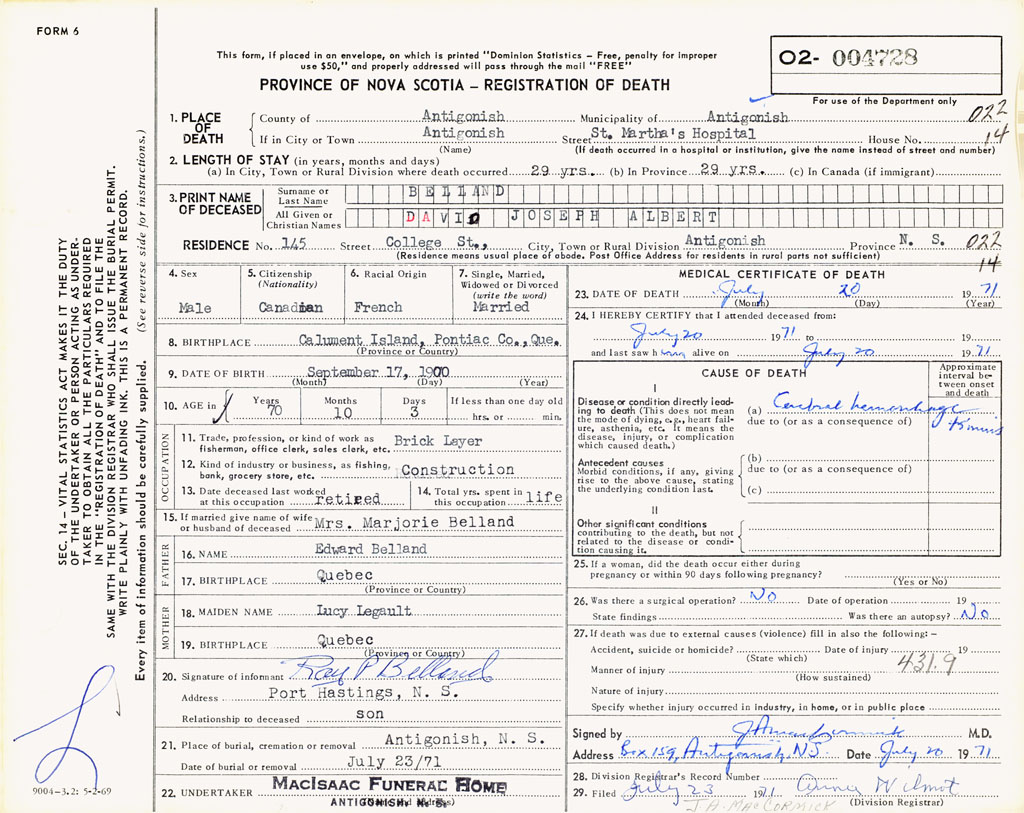 FORM 6
This form, if placed in an envelope, on which is printed "Dominion Statistics – Free, penalty for improper
use $50," and properly addressed will pass through the mail "FREE"
O2- 004728
PROVINCE OF NOVA SCOTIA – REGISTRATION OF DEATH
For use of the Department only
1. PLACE OF DEATH County of Antigonish Municipality of Antigonish 022
If in City or Town Antigonish Street St. Martha's Hospital House No. 14
(Name) (If death occurred in a hospital or institution, give the name instead of street and number)
2. LENGTH OF STAY (in years, months and days)
(a) In City, Town or Rural Division where death occurred 29 yrs. (b) In Province 29 yrs. (c) In Canada (if immigrant)
3. PRINT NAME OF DECEASED Surname or Last Name BELLAND
All Given or Christian Names DAVID JOSEPH ALBERT
RESIDENCE No. 145 Street College St., City, Town or Rural Division Antigonish Province N. S. 022
(Residence means usual place of abode. Post Office Address for residents in rural parts not sufficient) 14
4. Sex Male
5. Citizenship (Nationality) Canadian
6. Racial Origin French
7. Single, Married, Widowed or Divorced (write the word) Married
8. BIRTHPLACE Calument Island, Pontiac Co., Que.
(Province or Country)
9. DATE OF BIRTH September 17, 1900
(Month) (Day) (Year)
10. AGE in Years 70 Months 10 Days 3 If less than one day old hrs. or min.
OCCUPATION
11. Trade, profession, or kind of work as fisherman, office clerk, sales clerk, etc. Brick Layer
12. Kind of industry or business, as fishing, bank, grocery store, etc. Construction
13. Date deceased last worked at this occupation retired
14. Total yrs. spent in this occupation life
15. If married give name of wife or husband of deceased Mrs. Marjorie Belland
FATHER
16. NAME Edward Belland
17. BIRTHPLACE Quebec
(Province or Country)
MOTHER
18. MAIDEN NAME Lucy Legault
19. BIRTHPLACE Quebec
(Province or Country)
20. Signature of informant Ray P Belland
Address Port Hastings, N. S.
Relationship to deceased son
21. Place of burial, cremation or removal Antigonish, N. S.
Date of burial or removal July 23/71
22. UNDERTAKER MacIsaac Funeral Home
ANTIGONISH, N. S.
MEDICAL CERTIFICATE OF DEATH
23. DATE OF DEATH July 20 1971
(Month) (Day) (Year)
24. I HEREBY CERTIFY that I attended deceased from:
July 20 1971 to 19
and last saw him alive on July 20 1971
CAUSE OF DEATH
Approximate interval between onset and death
I
Disease or condition directly leading to death (This does not mean the mode of dying, e.g., heart failure, asthenia, etc. It means the disease, injury, or complication which caused death.)
(a) Cerebral hemorrhage
due to (or as a consequence of)
Antecedent causes
Morbid conditions, if any, giving rise to the above cause, stating the underlying condition last.
(b)
due to (or as a consequence of)
(c)
II
Other significant conditions
contributing to the death, but not related to the disease or condition causing it.
25. If a woman, did the death occur either during pregnancy or within 90 days following pregnancy?
(Yes or No)
26. Was there a surgical operation? No Date of operation 19
State findings Was there an autopsy? No
27. If death was due to external causes (violence) fill in also the following: –
Accident, suicide or homicide? Date of injury 19
(State which)
431.9
Manner of injury
(How sustained)
Nature of injury
Specify whether injury occurred in industry, in home, or in public place
Signed by J A MacCormick M.D.
Address Box 159, Antigonish, N.S. Date July 20 1971
28. Division Registrar's Record Number
29. Filed July 23 1971 Wilmot
(Division Registrar)
J.A. MacCormick
SEC. 14 – VITAL STATISTICS ACT MAKES IT THE DUTY
OF THE UNDERTAKER OR PERSON ACTING AS UNDER-
TAKER TO OBTAIN ALL THE PARTICULARS REQUIRED
IN THE "REGISTRATION OF DEATH" AND TO FILE THE
SAME WITH THE DIVISION REGISTRAR WHO SHALL ISSUE THE BURIAL PERMIT.
WRITE PLAINLY WITH UNFADING INK. THIS IS A PERMANENT RECORD.
Every item of information should be carefully supplied. (See reverse side for instructions.)
9004-3.2: 5-2-69